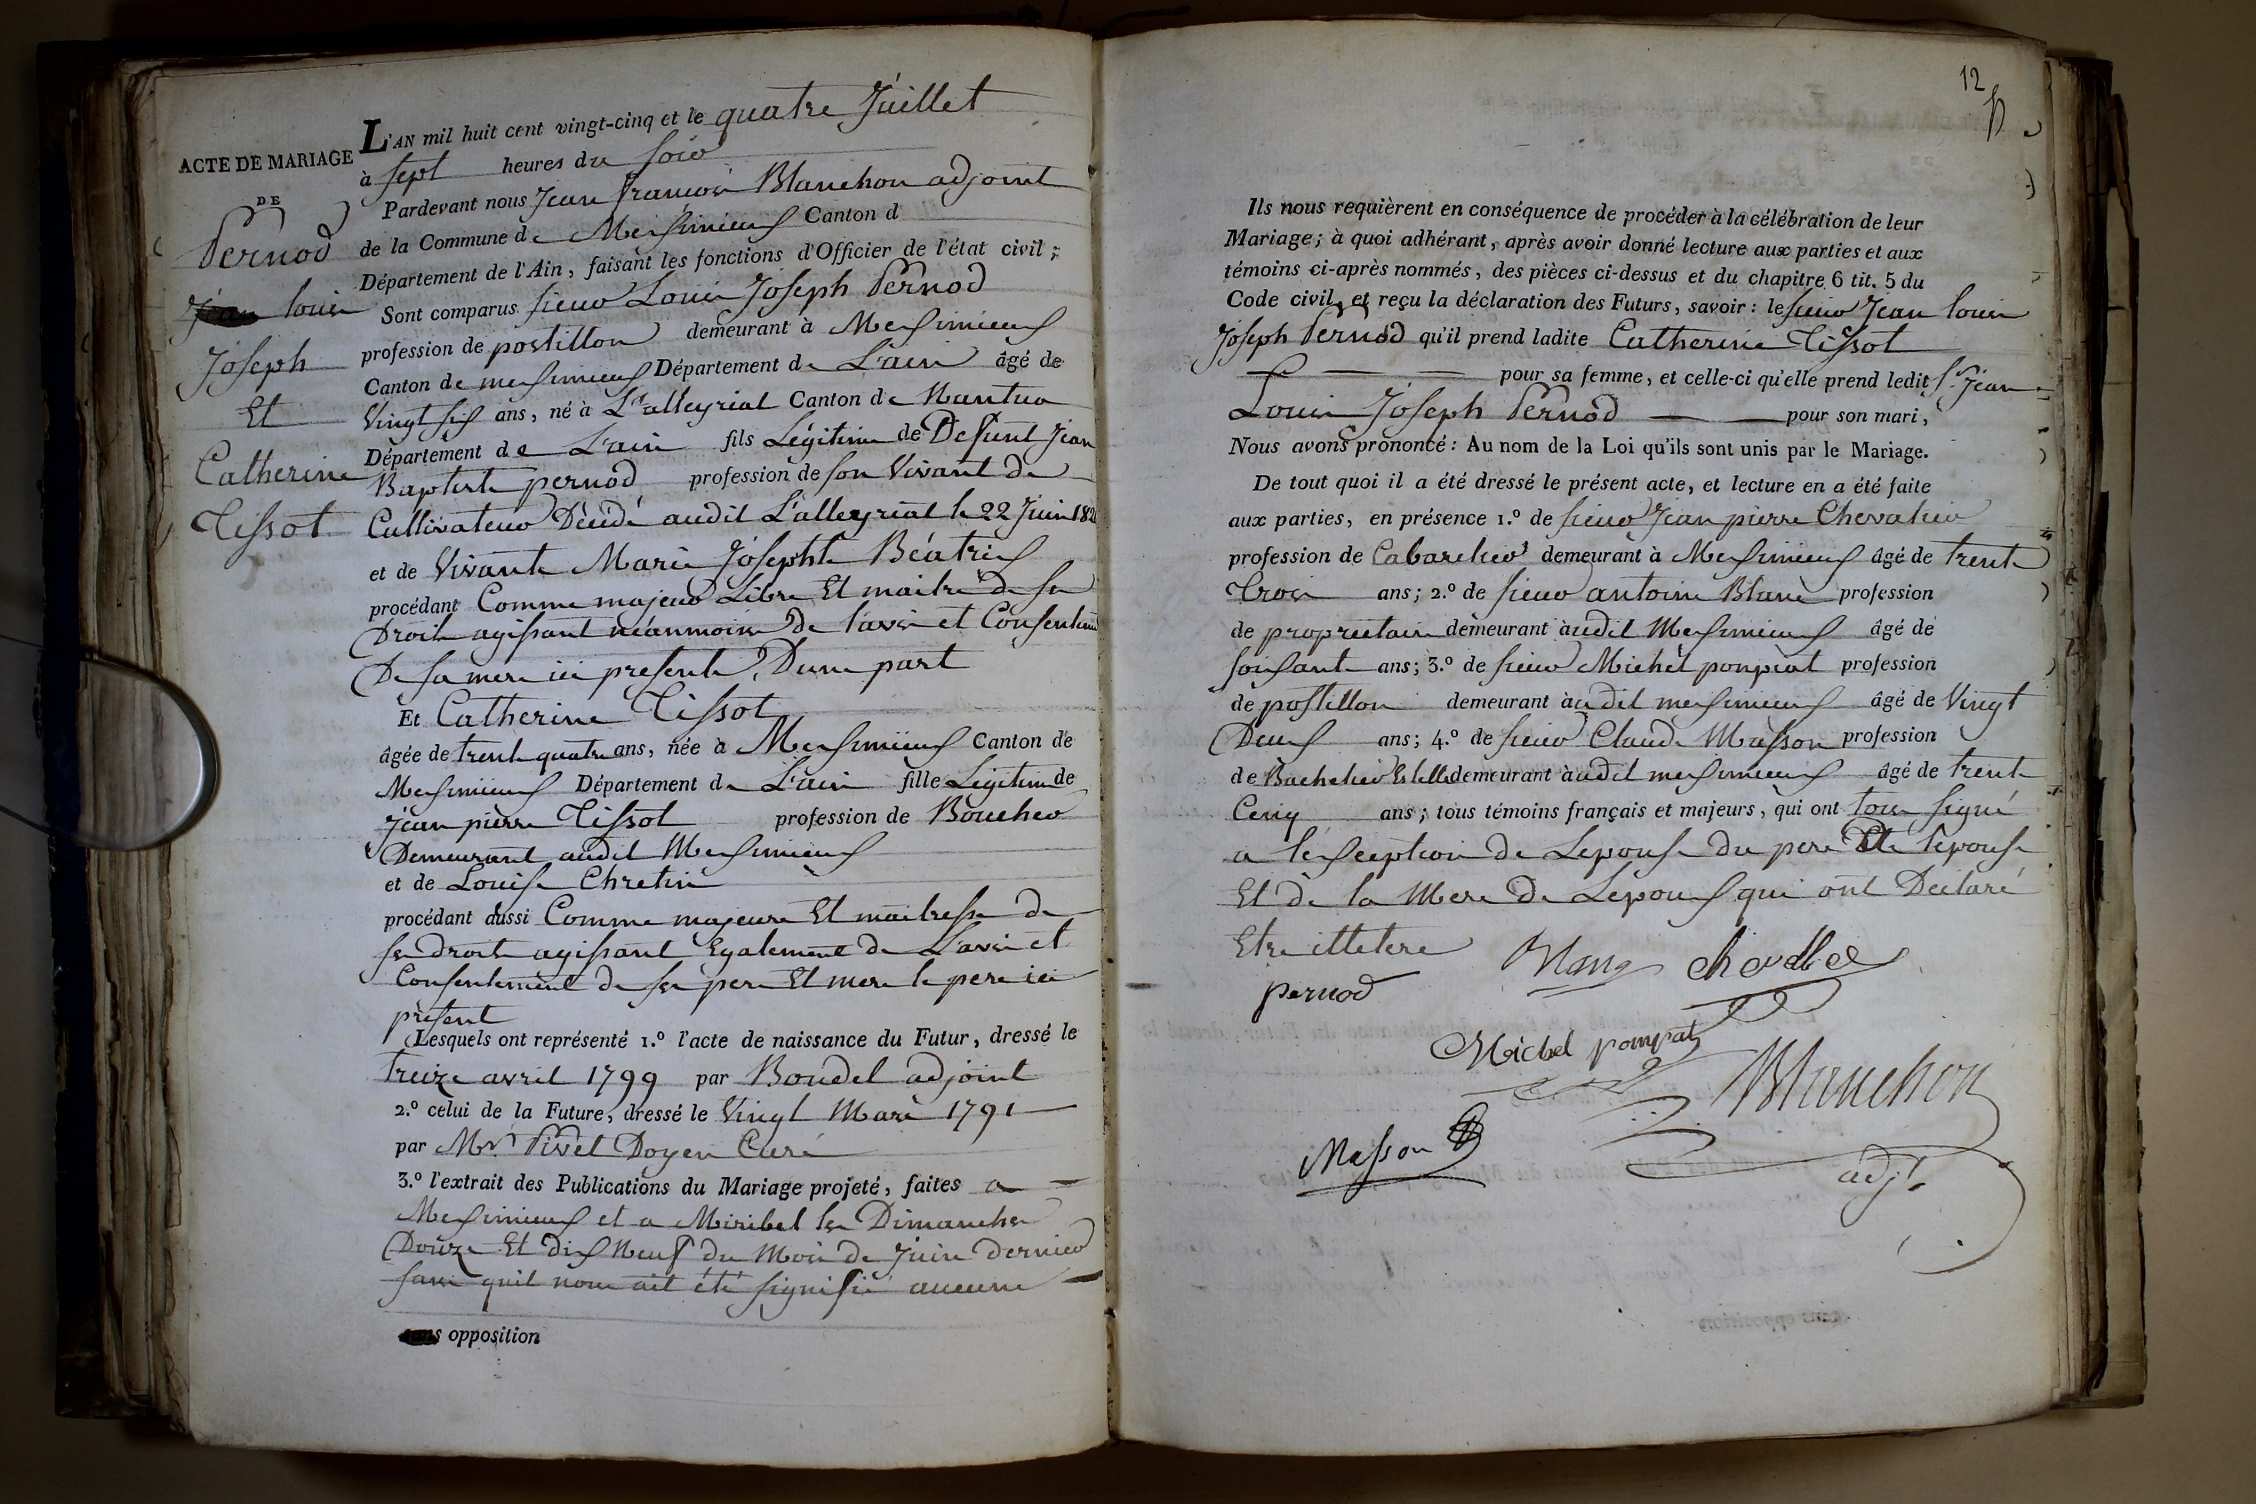 ACTE DE MARIAGE
DE
Pernod
Jean louis
Joseph
Et
Catherine
Tissot
L'AN mil huit cent vingt-cinq et le quatre Juillet
à sept heures du soir
Pardevant nous Jean francois Blanchon adjoint
de la Commune de Meximieux Canton d
Département de l'Ain, faisant les fonctions d'Officier de l'état civil;
Sont comparus sieur Louis Joseph Pernod
profession de postillon demeurant à Meximieux
Canton de meximieux Département de L'ain âgé de
Vingt six ans, né à L'alleyriat Canton de Nantua
Département de L'ain fils Légitime de Defunt Jean
Baptiste pernod profession de son Vivant de
Cultivateur Décédé audit L'alleyriat le 22 Juin 182
et de Vivante Marie Josephte Béatrix
procédant Comme majeur Libre Et maitre de ses
Droits agissant néanmoins de l'avis et Consentement
De sa mere ici presente, D'une part
Et Catherine Tissot
âgée de trente quatre ans, née à Meximieux Canton de
Meximieux Département de L'ain fille Légitime de
Jean pierre Tissot profession de Boucher
Demeurant audit Meximieux
et de Louise Chretin
procédant aussi Comme majeure Et maitresse de
ses droits agissant Egalement de L'avis et
Consentement de ses pere Et mere le pere ici
présent
Lesquels ont représenté 1.º l'acte de naissance du Futur, dressé le
treize avril 1799 par Boudel adjoint
2.º celui de la Future, dressé le Vingt Mars 1791
par Mr. Pivet Doyen Curé
3.º l'extrait des Publications du Mariage projeté, faites a
Meximieux et a Miribel les Dimanches
Douze Et dix Neuf du Mois de Juin dernier
sans quil nous ait été signifié aucune
sans opposition
12
Ils nous requièrent en conséquence de procéder à la célébration de leur
Mariage; à quoi adhérant, après avoir donné lecture aux parties et aux
témoins ci-après nommés, des pièces ci-dessus et du chapitre 6 tit. 5 du
Code civil, et reçu la déclaration des Futurs, savoir: le sieur Jean louis
Joseph Pernod qu'il prend ladite Catherine Tissot
pour sa femme, et celle-ci qu'elle prend ledit Sr. Jean
Louis Joseph Pernod pour son mari,
Nous avons prononcé: Au nom de la Loi qu'ils sont unis par le Mariage.
De tout quoi il a été dressé le présent acte, et lecture en a été faite
aux parties, en présence 1.º de sieur Jean pierre Chevalier
profession de Cabaretier demeurant à Meximieux âgé de trente
Trois ans; 2.º de sieur antoine Blanc profession
de propriétaire demeurant audit Meximieux âgé de
soixante ans; 3.º de sieur Michel pompiat profession
de postillon demeurant audit meximieux âgé de Vingt
Deux ans; 4.º de sieur Claude Masson profession
de demeurant audit meximieux âgé de trente
Cinq ans; tous témoins français et majeurs, qui ont tous signé
a lexception de Lepouse du pere De lepouse
Et de la Mere de Lepoux qui ont Déclaré
Etre illetere
pernod Blanc Chevallier
Michel pompiat
Blanchon
Masson
adjt.